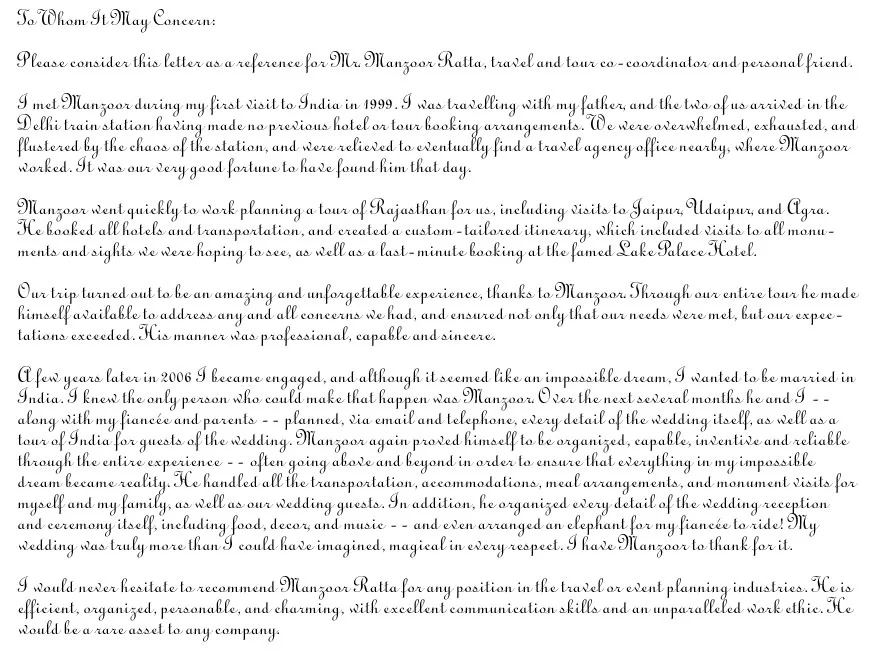 To Whom It May Concern:
Please consider this letter as a reference for Mr. Manzoor Ratta, travel and tour co-coordinator and personal friend.
I met Manzoor during my first visit to India in 1999. I was travelling with my father, and the two of us arrived in the
Delhi train station having made no previous hotel or tour booking arrangements. We were overwhelmed, exhausted, and
flustered by the chaos of the station, and were relieved to eventually find a travel agency office nearby, where Manzoor
worked. It was our very good fortune to have found him that day.
Manzoor went quickly to work planning a tour of Rajasthan for us, including visits to Jaipur, Udaipur, and Agra.
He booked all hotels and transportation, and created a custom-tailored itinerary, which included visits to all monu-
ments and sights we were hoping to see, as well as a last-minute booking at the famed Lake Palace Hotel.
Our trip turned out to be an amazing and unforgettable experience, thanks to Manzoor. Through our entire tour he made
himself available to address any and all concerns we had, and ensured not only that our needs were met, but our expec-
tations exceeded. His manner was professional, capable and sincere.
A few years later in 2006 I became engaged, and although it seemed like an impossible dream, I wanted to be married in
India. I knew the only person who could make that happen was Manzoor. Over the next several months he and I --
along with my fiancée and parents -- planned, via email and telephone, every detail of the wedding itself, as well as a
tour of India for guests of the wedding. Manzoor again proved himself to be organized, capable, inventive and reliable
through the entire experience -- often going above and beyond in order to ensure that everything in my impossible
dream became reality. He handled all the transportation, accommodations, meal arrangements, and monument visits for
myself and my family, as well as our wedding guests. In addition, he organized every detail of the wedding reception
and ceremony itself, including food, decor, and music -- and even arranged an elephant for my fiancée to ride! My
wedding was truly more than I could have imagined, magical in every respect. I have Manzoor to thank for it.
I would never hesitate to recommend Manzoor Ratta for any position in the travel or event planning industries. He is
efficient, organized, personable, and charming, with excellent communication skills and an unparalleled work ethic. He
would be a rare asset to any company.